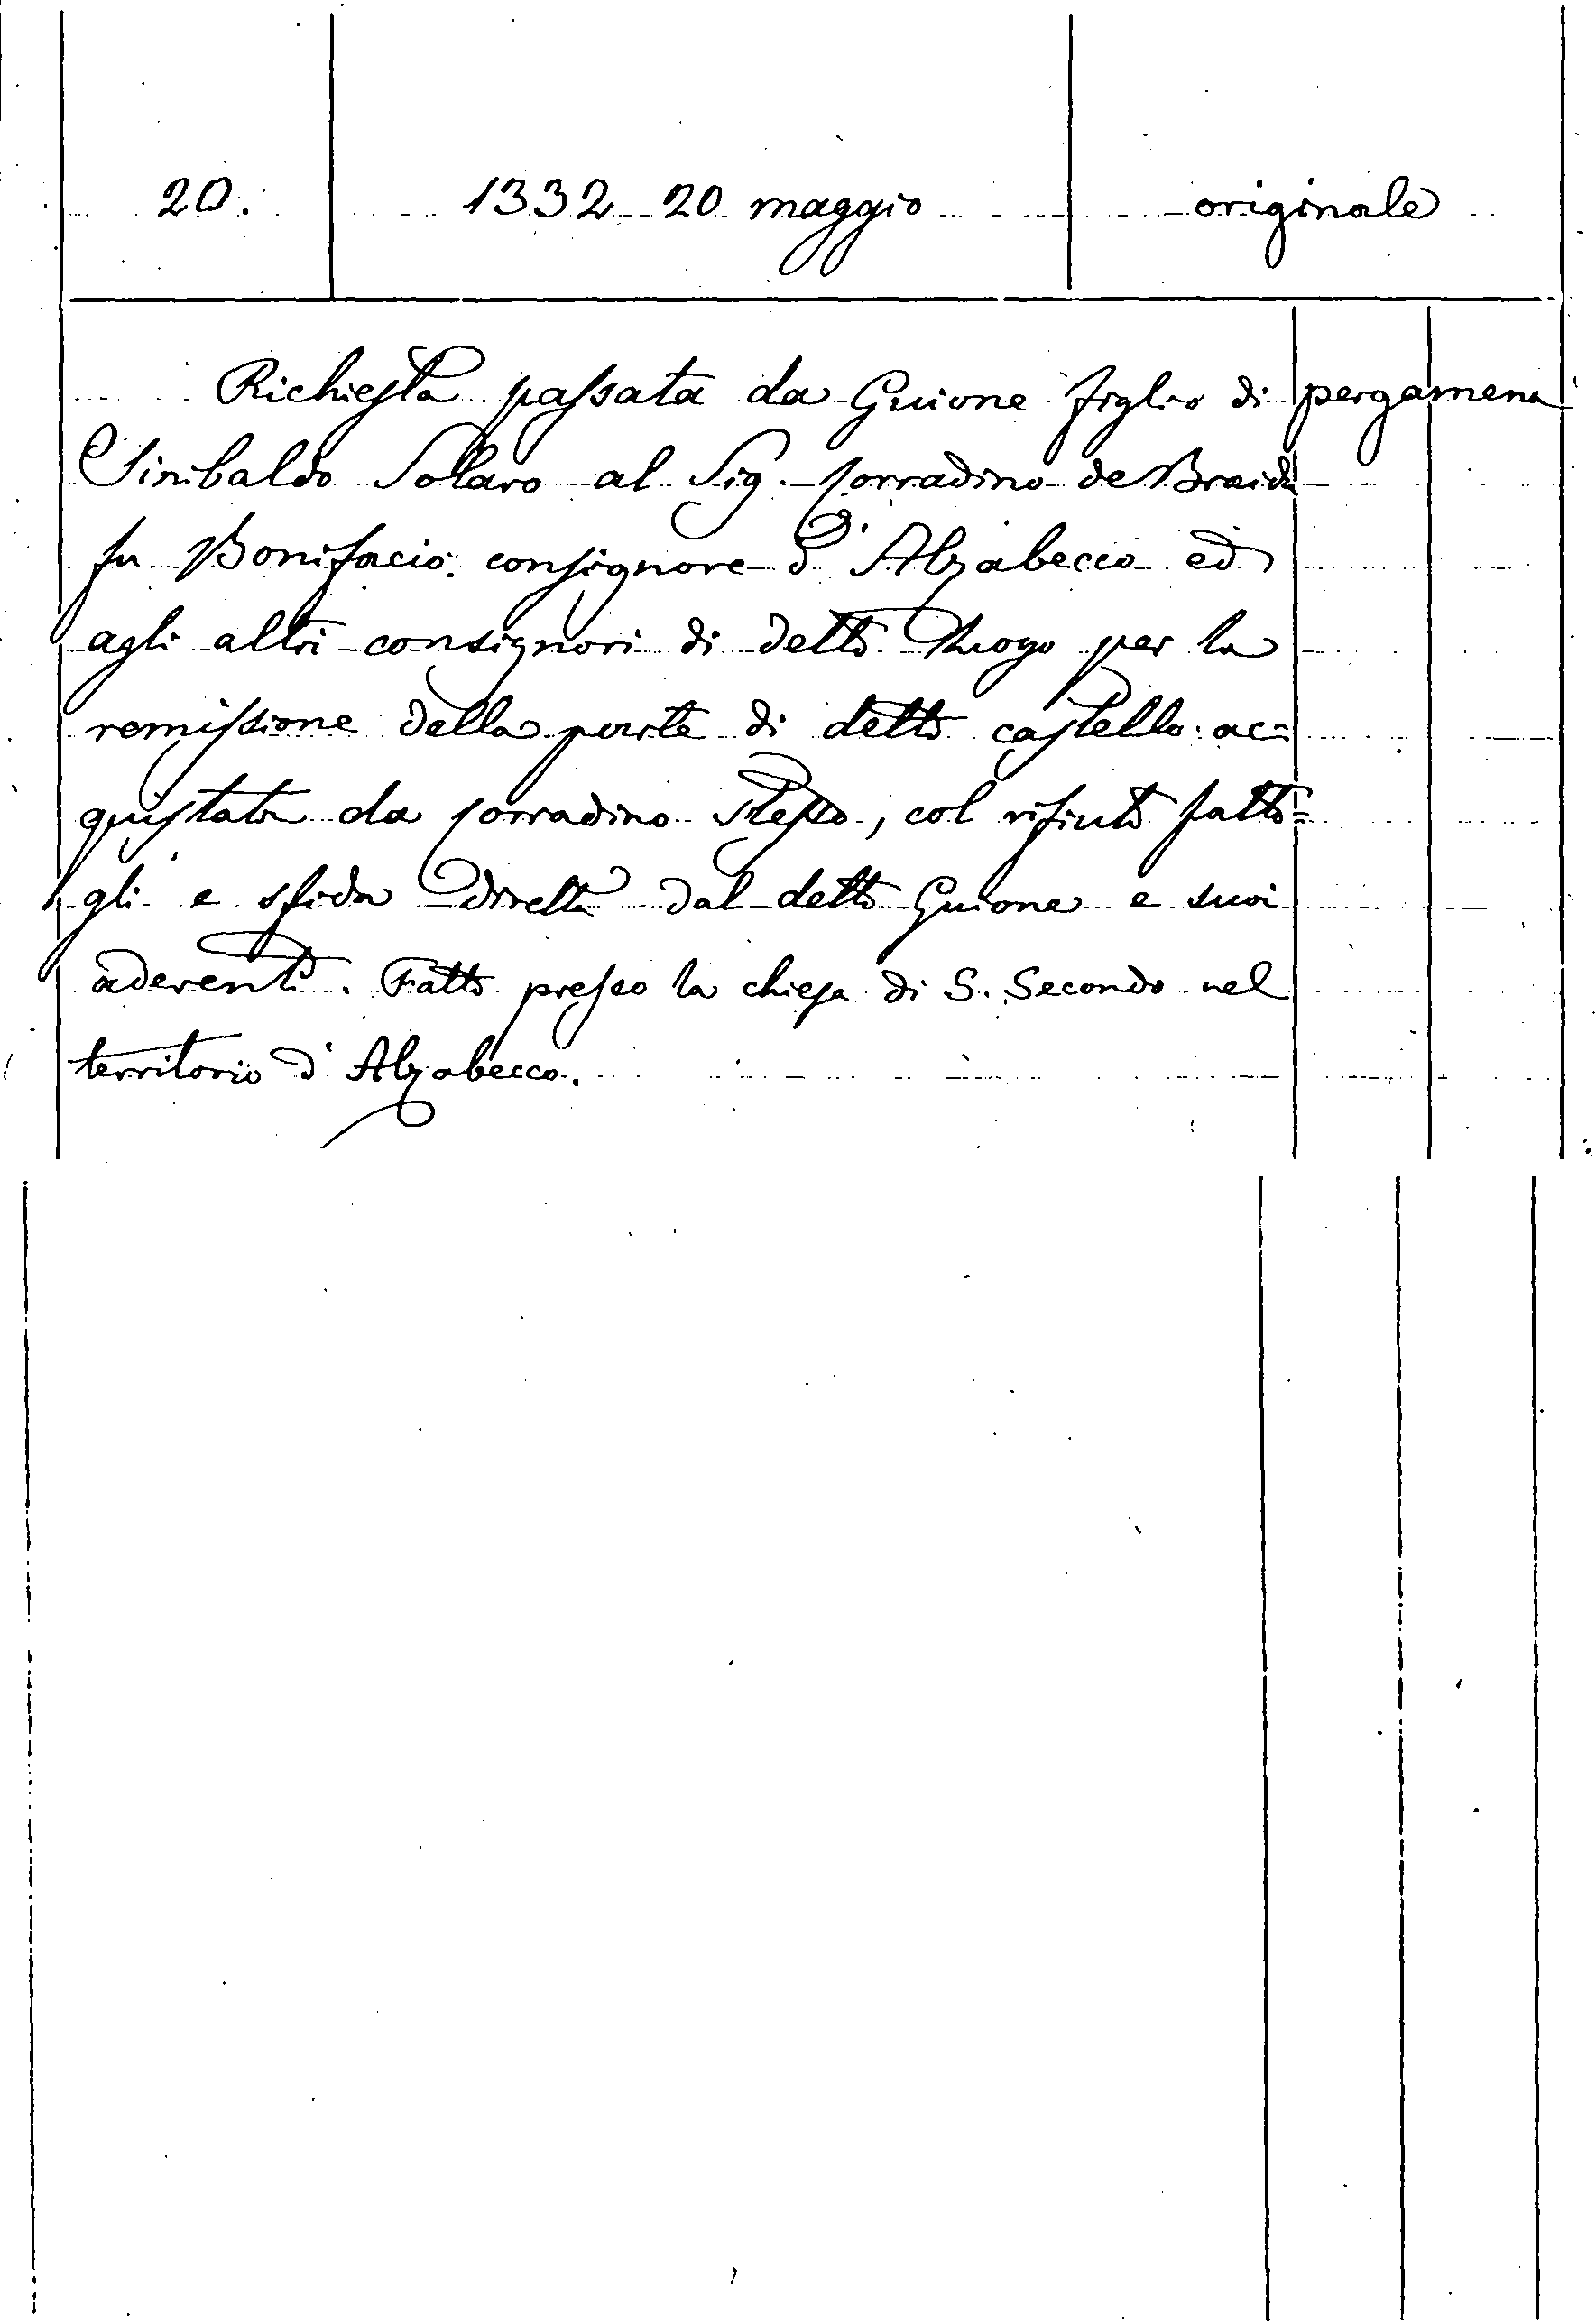 20. 1332 20 maggio originale
Richiesta passata da Guione figlio di pergamena
Sinibaldo Solaro al Sig. Corradino de Braida
fu Bonifacio consignore d'Alzabecco ed
agli altri consignori di detto luogo per la
remissione della parte di detto castello ac=
quistata da Corradino stesso, col rifiuto fatto=
gli e sfida diretta dal detto Guione e suoi
aderenti. Fatto presso la chiesa di S. Secondo nel
territorio d'Alzabecco.